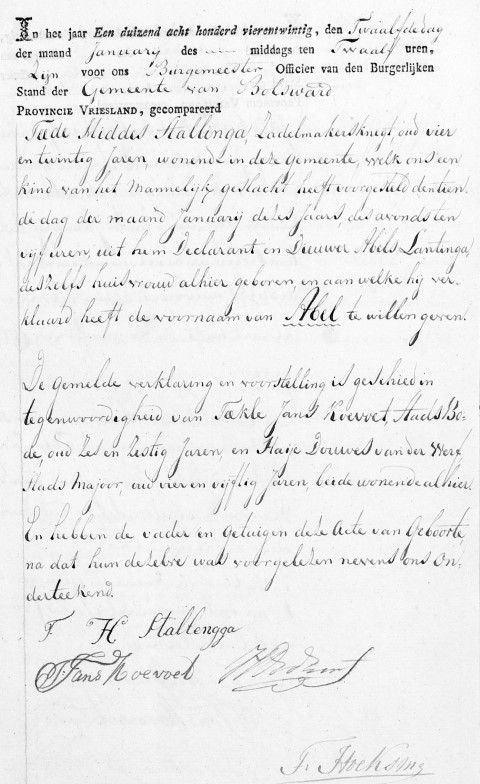 In het jaar Een duizend acht honderd vierentwintig, den Twaalfde dag
der maand January des middags ten Twaalf uren,
Zijn voor ons Burgemeester Officier van den Burgerlijken
Stand der Gemeente van Bolsward
PROVINCIE VRIESLAND, gecompareerd
Tæde Middes Stallinga, Zadelmakersknegt, oud vier
en twintig Jaren, wonend in deze Gemeente, welk ons een
kind van het Mannelijk geslacht heeft voorgesteld den tien
de dag der maand Januarij dezes Jaars, des avonds ten
vijf uren, uit hem Declarant en Deuwer Abels Lantinga,
deszelfs huisvrouw alhier geboren, en aan welke hij ver-
klaard heeft de voornaam van Abel te willen geven.
De gemelde verklaring en voorstelling is geschied in
tegenwoordigheid van Tækle Jans Koevoet, Stads Bo-
de, oud Zes en Zestig Jaren, en Haije Douwes van der Werf,
Stads Majoor, oud vier en vijftig Jaren, beide wonende alhier.
En hebben de vader en getuigen deze Acte van Geboorte,
na dat hun dezelve was voorgelezen nevens ons On-
derteekend.
T H Stallengga
T Jans Koevoet